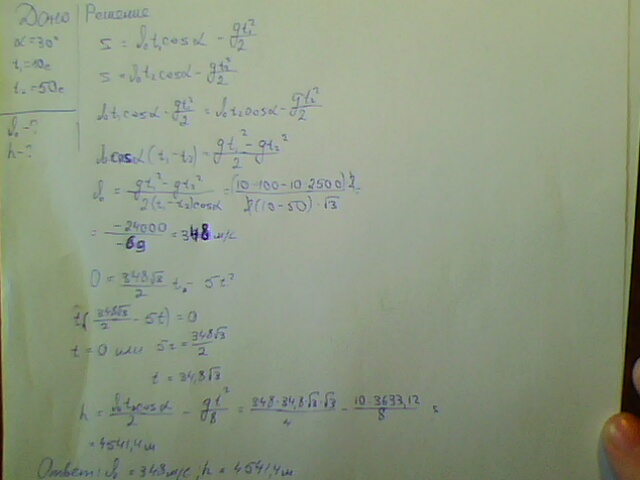 Дано
α = 30°
t₁ = 10с
t₂ = 50с
ϑ₀ - ?
h - ?
Решение
s = ϑ₀t₁cosα - gt₁²/2
s = ϑ₀t₂cosα - gt₂²/2
ϑ₀t₁cosα - gt₁²/2 = ϑ₀t₂cosα - gt₂²/2
ϑ₀cosα(t₁-t₂) = (gt₁² - gt₂²)/2
ϑ₀ = (gt₁² - gt₂²)/(2(t₁-t₂)cosα) = (10·100-10·2500)2/(2(10-50)·√3) =
= -24000/-69 = 348 м/с
0 = 348√3/2 t₀ - 5t²
t(348√3/2 - 5t) = 0
t = 0 или 5t = 348√3/2
t = 34,8√3
h = ϑ₀t₀cosα/2 - gt²/8 = 348·34,8√3·√3/4 - 10·3633,12/8 =
= 4541,4 м
Ответ: ϑ₀ = 348 м/с, h = 4541,4 м